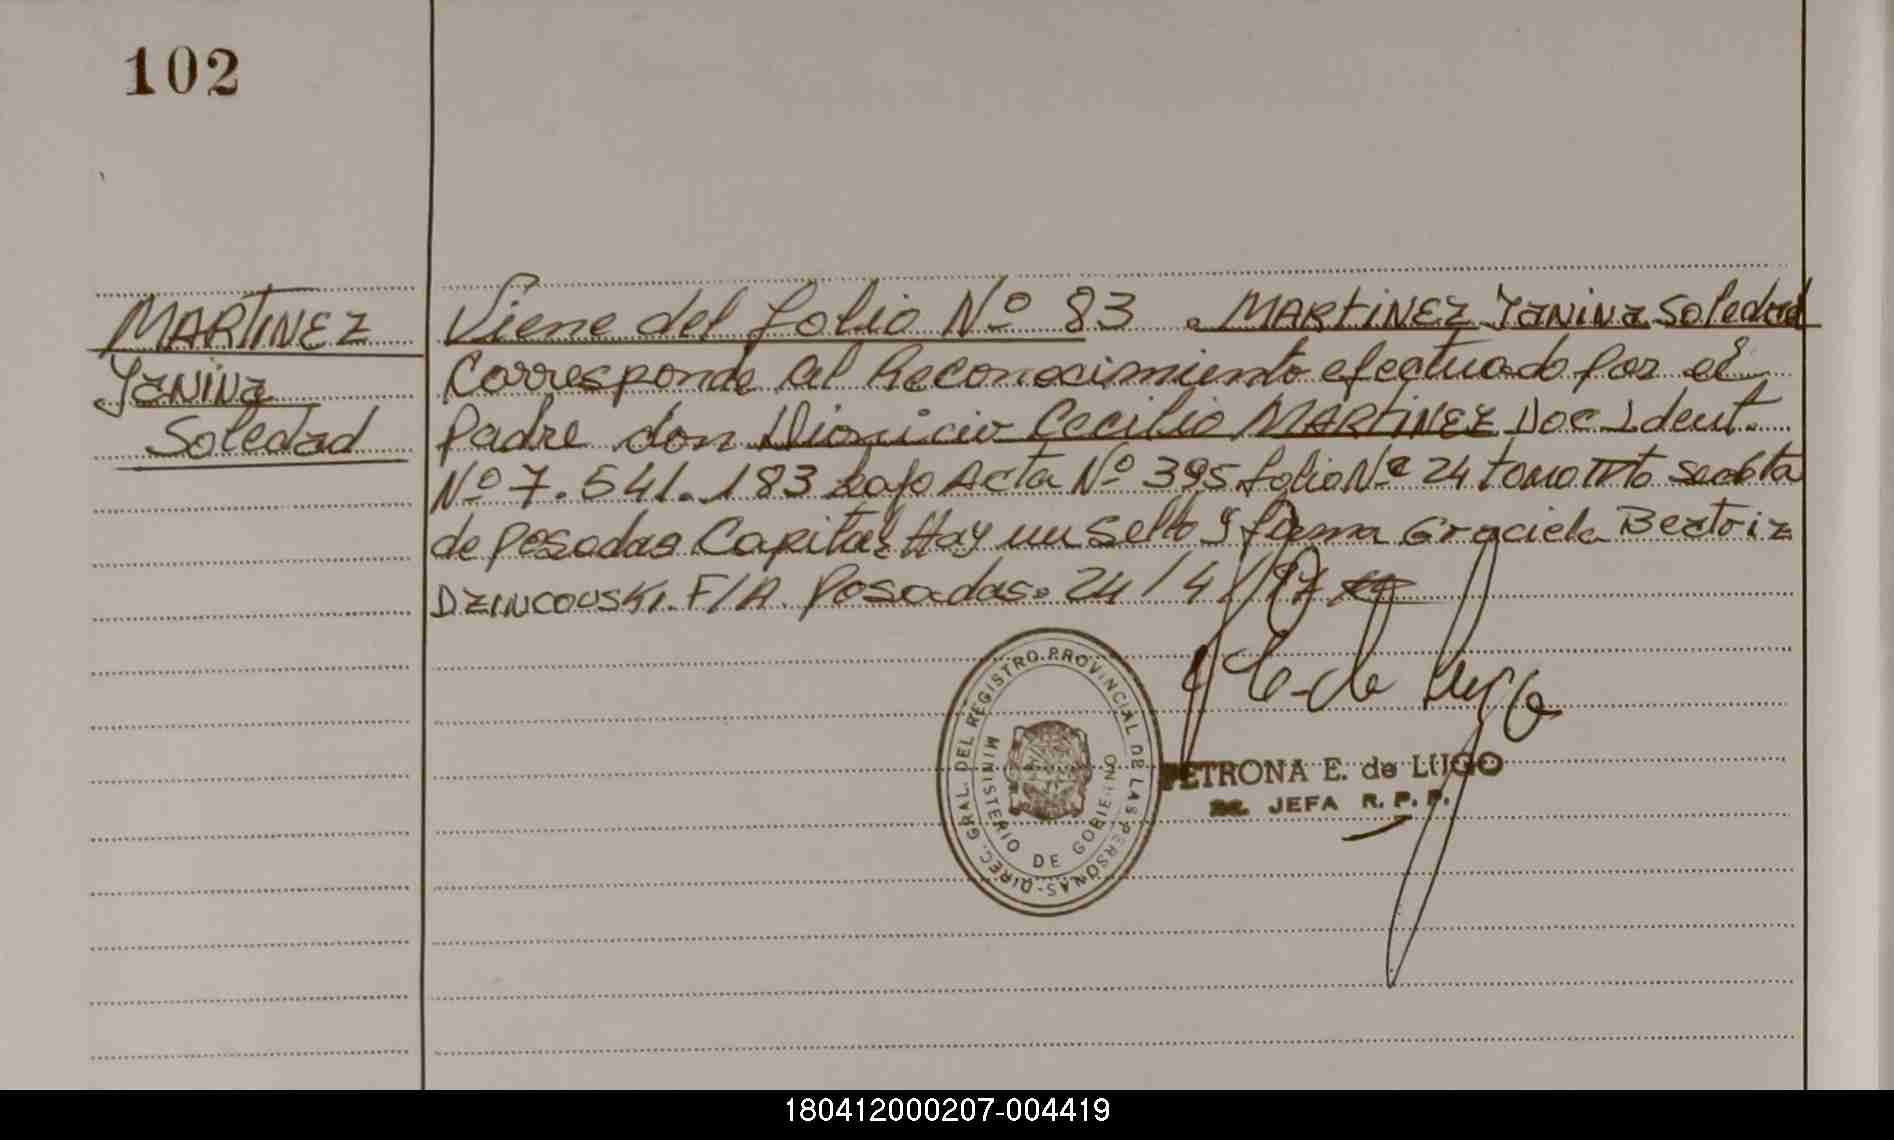 102
MARTINEZ
Janina
Soledad
Viene del folio Nº 83 . MARTINEZ Janina Soledad
Corresponde al Reconocimiento efectuado por el
Padre don Dionicio Cecilio MARTINEZ Doc Ident.
Nº 7.541.183 bajo Acta Nº 395 folio Nº 24 tomo sec 6ta
de Posadas Capital Hay un sello y firma Graciela Beatriz
DZINCOUSKI. F/A. Posadas. 24/4/97
E. de Lugo
DIREC. GRAL. DEL REGISTRO PROVINCIAL DE LAS PERSONAS
MINISTERIO DE GOBIERNO
PETRONA E. de LUGO
JEFA R. P. P.
180412000207-004419